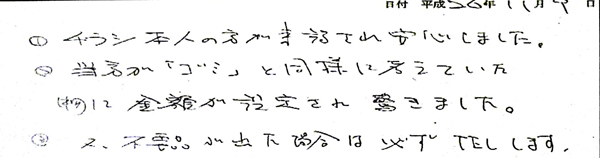 日付 平成30年11月9日
① チラシ本人の方が来訪され安心しました。
② 当方が「ゴミ」と同様に考えていた
(物)に金額が設定され驚きました。
③ 又、不要品が出た場合は必ずTELします。